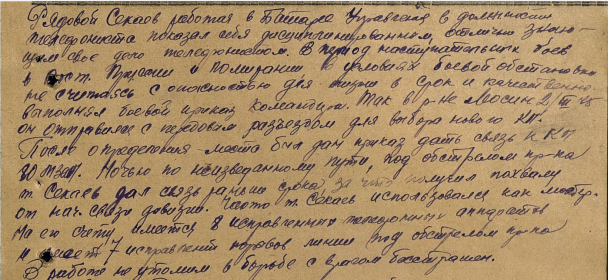 Рядовой Секаев работая в Батарее Управления в должности
телефониста показал себя дисциплинированным, отлично знаю-
щим свое дело телефонистом. В период наступательных боев
в Вост. Пруссии и Померании в условиях боевой обстановки
не считаясь с опасностью для жизни в срок и качественно
выполнял боевой приказ командира. Так в р-не Мосин 2/III 45
он отправился с передовым разъездом для выбора нового КП.
После определения места был дан приказ дать связь к КП
Ночью по неизведанному пути, под обстрелом пр-ка
т. Секаев дал связь раньше срока, за что получил похвалу
от нач. связи дивизии. Часто т. Секаев использовался как
На его счету имеется 8 исправленных телефонных аппаратов
и 7 исправлений порывов линии под обстрелом пр-ка
В работе неутомим в борьбе с врагом бесстрашен.